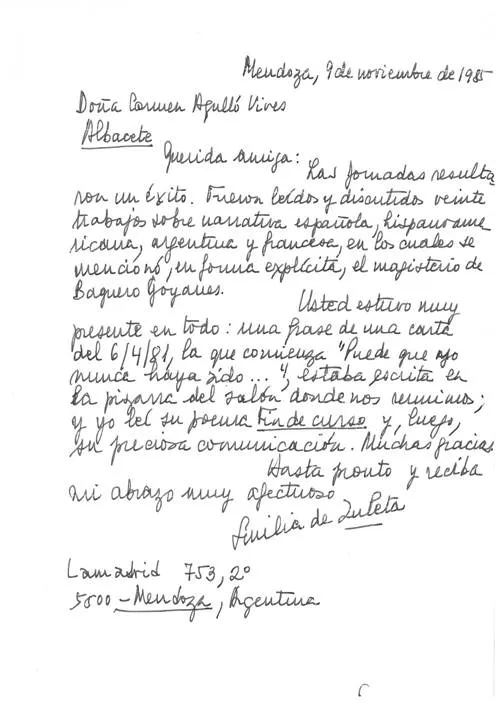 Mendoza, 9 de noviembre de 1985
Doña Carmen Agulló Vives
Albacete
Querida amiga:
Las Jornadas resulta
ron un éxito. Fueron leídos y discutidos veinte
trabajos sobre narrativa española, hispanoame
ricana, argentina y francesa, en los cuales se
mencionó, en forma explícita, el magisterio de
Baquero Goyanes.
Usted estuvo muy
presente en todo: una frase de una carta
del 6/4/81, la que comienza "Puede que yo
nunca haya sido ...", estaba escrita en
la pizarra del salón donde nos reunimos;
y yo leí su poema Fin de curso y, luego,
su preciosa comunicación. Muchas gracias.
Hasta pronto y reciba
mi abrazo muy afectuoso
Emilia de Zuleta
Lamadrid 753, 2º
5500 - Mendoza, Argentina